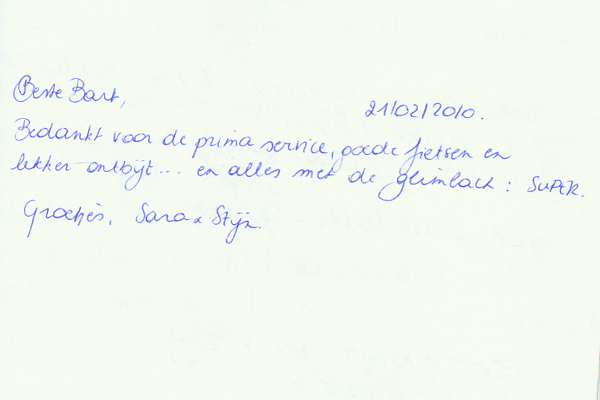 Beste Bart,
21/02/2010.
Bedankt voor de prima service, goede fietsen en
lekker ontbijt... en alles met de glimlach: SUPER.
Groetjes, Sara & Stijn.